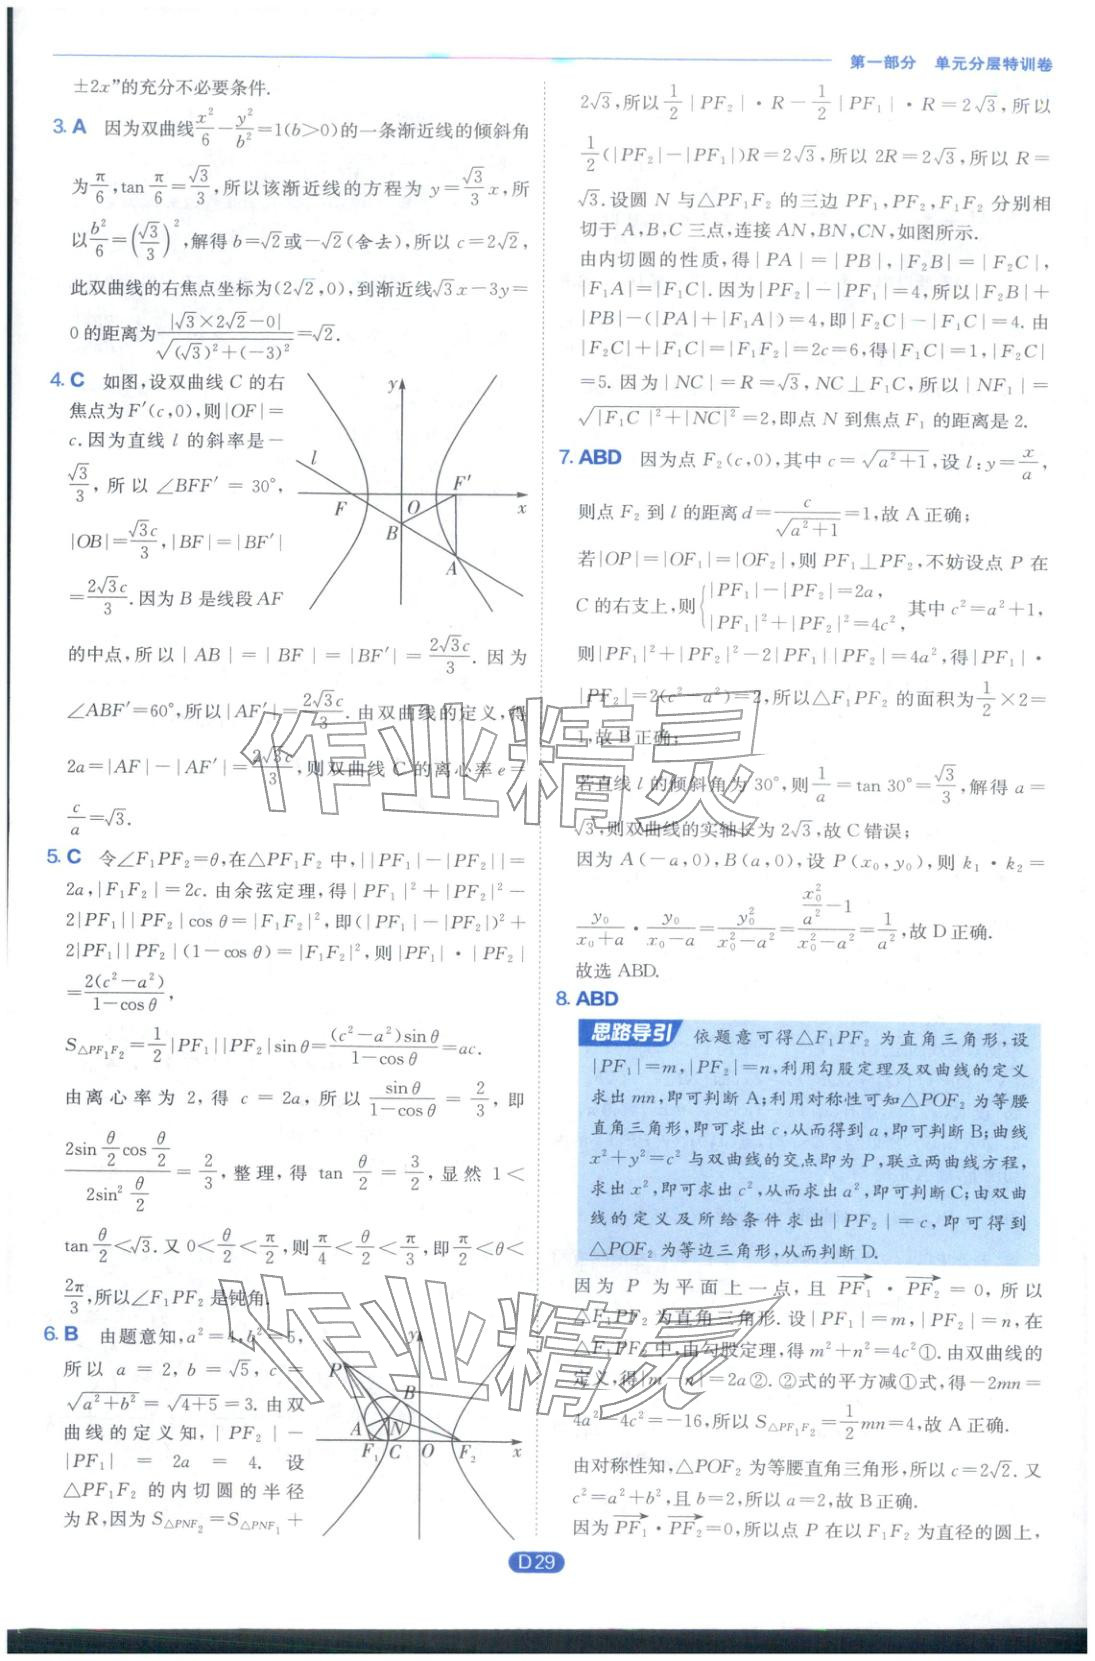 第一部分 单元分层特训卷
±2x”的充分不必要条件.
3. A 因为双曲线x²/6－y²/b²=1(b>0)的一条渐近线的倾斜角
为π/6,tan π/6=√3/3,所以该渐近线的方程为 y=√3/3 x,所
以b²/6=(√3/3)²,解得 b=√2或-√2(舍去),所以 c=2√2,
此双曲线的右焦点坐标为(2√2,0),到渐近线√3x-3y=
0 的距离为|√3×2√2-0|/√((√3)²+(-3)²)=√2.
4. C 如图,设双曲线 C 的右
焦点为 F′(c,0),则|OF|=
c.因为直线 l 的斜率是-
√3/3,所以∠BFF′=30°,
|OB|=√3c/3,|BF|=|BF′|
=2√3c/3.因为 B 是线段 AF
的中点,所以|AB|=|BF|=|BF′|=2√3c/3.因为
∠ABF′=60°,所以|AF′|=2√3c/3.由双曲线的定义,得
2a=|AF|-|AF′|=2√3c/3,则双曲线 C 的离心率 e=
c/a=√3.
y
l
F′
F
O
x
B
A
5. C 令∠F₁PF₂=θ,在△PF₁F₂ 中,||PF₁|-|PF₂||=
2a,|F₁F₂|=2c.由余弦定理,得|PF₁|²+|PF₂|²-
2|PF₁||PF₂|cos θ=|F₁F₂|²,即(|PF₁|-|PF₂|)²+
2|PF₁||PF₂|(1-cos θ)=|F₁F₂|²,则|PF₁|·|PF₂|
=2(c²-a²)/(1-cos θ),
S△PF₁F₂=1/2|PF₁||PF₂|sin θ=(c²-a²)sin θ/(1-cos θ)=ac.
由离心率为 2,得 c=2a,所以 sin θ/(1-cos θ)=2/3,即
2sin θ/2 cos θ/2 / 2sin² θ/2=2/3,整理,得 tan θ/2=3/2,显然 1<
tan θ/2<√3.又 0<θ/2<π/2,则π/4<θ/2<π/3,即π/2<θ<
2π/3,所以∠F₁PF₂ 是钝角.
6. B 由题意知,a²=4,b²=5,
所以 a=2,b=√5,c=
√(a²+b²)=√(4+5)=3.由双
曲线的定义知,|PF₂|-
|PF₁|=2a=4.设
△PF₁F₂ 的内切圆的半径
为 R,因为 S△PNF₂=S△PNF₁+
y
P
B
A
N
F₁
C
O
F₂
x
2√3,所以1/2|PF₂|·R-1/2|PF₁|·R=2√3,所以
1/2(|PF₂|-|PF₁|)R=2√3,所以 2R=2√3,所以 R=
√3.设圆 N 与△PF₁F₂ 的三边 PF₁,PF₂,F₁F₂ 分别相
切于 A,B,C 三点,连接 AN,BN,CN,如图所示.
由内切圆的性质,得|PA|=|PB|,|F₂B|=|F₂C|,
|F₁A|=|F₁C|.因为|PF₂|-|PF₁|=4,所以|F₂B|+
|PB|-(|PA|+|F₁A|)=4,即|F₂C|-|F₁C|=4.由
|F₂C|+|F₁C|=|F₁F₂|=2c=6,得|F₁C|=1,|F₂C|
=5.因为|NC|=R=√3,NC⊥F₁C,所以|NF₁|=
√(|F₁C|²+|NC|²)=2,即点 N 到焦点 F₁ 的距离是 2.
7. ABD 因为点 F₂(c,0),其中 c=√(a²+1),设 l:y=x/a,
则点 F₂ 到 l 的距离 d=c/√(a²+1)=1,故 A 正确;
若|OP|=|OF₁|=|OF₂|,则 PF₁⊥PF₂,不妨设点 P 在
C 的右支上,则{|PF₁|-|PF₂|=2a, |PF₁|²+|PF₂|²=4c², 其中 c²=a²+1,
则|PF₁|²+|PF₂|²-2|PF₁||PF₂|=4a²,得|PF₁|·
|PF₂|=2(c²-a²)=2,所以△F₁PF₂ 的面积为1/2×2=
1,故 B 正确;
若直线 l 的倾斜角为 30°,则1/a=tan 30°=√3/3,解得 a=
√3,则双曲线的实轴长为 2√3,故 C 错误;
因为 A(-a,0),B(a,0),设 P(x₀,y₀),则 k₁·k₂=
y₀/(x₀+a)·y₀/(x₀-a)=y₀²/(x₀²-a²)=(x₀²/a²-1)/(x₀²-a²)=1/a²,故 D 正确.
故选 ABD.
8. ABD
思路导引 依题意可得△F₁PF₂ 为直角三角形,设
|PF₁|=m,|PF₂|=n,利用勾股定理及双曲线的定义
求出 mn,即可判断 A;利用对称性可知△POF₂ 为等腰
直角三角形,即可求出 c,从而得到 a,即可判断 B;曲线
x²+y²=c² 与双曲线的交点即为 P,联立两曲线方程,
求出 x²,即可求出 c²,从而求出 a²,即可判断 C;由双曲
线的定义及所给条件求出|PF₂|=c,即可得到
△POF₂ 为等边三角形,从而判断 D.
因为 P 为平面上一点,且 PF₁→·PF₂→=0,所以
△F₁PF₂ 为直角三角形.设|PF₁|=m,|PF₂|=n,在
△F₁PF₂ 中,由勾股定理,得 m²+n²=4c²①.由双曲线的
定义,得|m-n|=2a②.②式的平方减①式,得-2mn=
4a²-4c²=-16,所以 S△PF₁F₂=1/2mn=4,故 A 正确.
由对称性知,△POF₂ 为等腰直角三角形,所以 c=2√2.又
c²=a²+b²,且 b=2,所以 a=2,故 B 正确.
因为PF₁→·PF₂→=0,所以点 P 在以 F₁F₂ 为直径的圆上,
D29
作业精灵
作业精灵